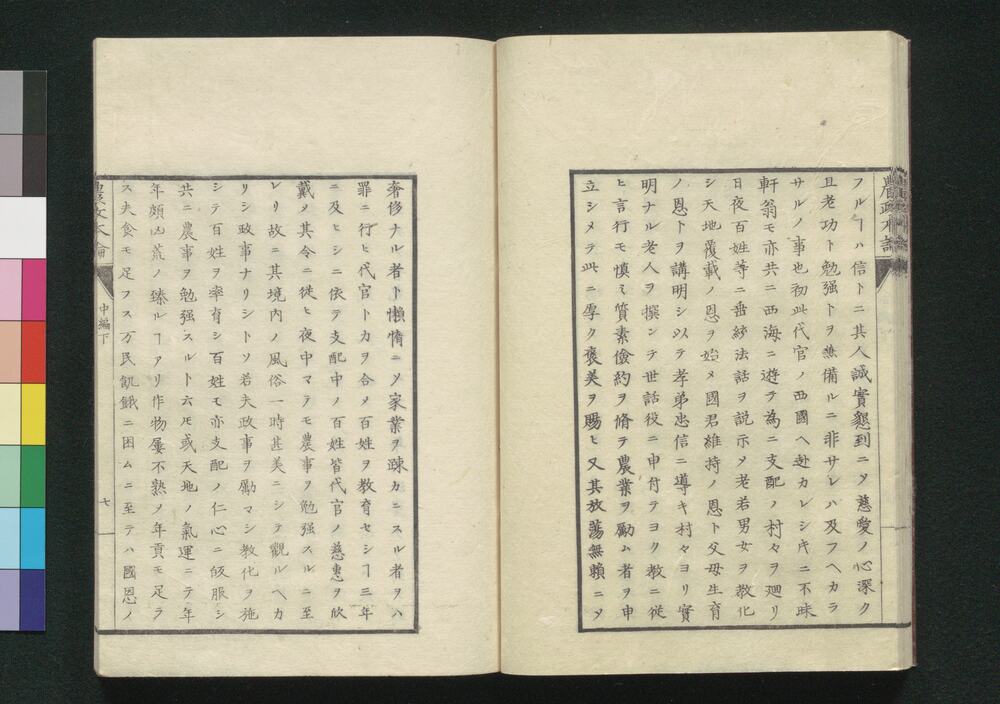 農政本論
フルヿハ信トニ其人誠實懇到ニメ慈愛ノ心深ク
且老功ト勉强トヲ兼備ルニ非サレハ及フヘカラ
サルノ事也初此代官ノ西國ヘ赴カレシ𪜈ニ不昧
軒翁モ亦共ニ西海ニ遊テ為ニ支配ノ村々ヲ廻リ
日夜百姓等ニ番絝法話ヲ説示メ老若男女ヲ教化
シ天地覆載ノ恩ヲ始メ國君維持ノ恩ト父母生育
ノ恩トヲ講明シ以テ孝弟忠信ニ導キ村々ヨリ實
明ナル老人ヲ撰ンテ世話役ニ申付テヨク教ニ従
ヒ言行モ慎ミ質素儉約ヲ脩テ農業ヲ勵ム者ヲ申
立シメテ此ニ厚ク褒美ヲ賜ヒ又其放蕩無頼ニメ
奢侈ナル者ト懶惰ニメ家業ヲ疎カニスル者ヲハ
罪ニ行ヒ代官トカヲ合メ百姓ヲ教育セシヿ三年
ニ及ヒシニ依テ支配中ノ百姓皆代官ノ慈惠ヲ欣
戴メ其令ニ従ヒ夜中マテモ農事ヲ勉强スルニ至
レリ故ニ其境内ノ風俗一時甚美ニシテ觀ルヘカ
リシ政事ナリシトソ若夫政事ヲ勵マシ教化ヲ施
シテ百姓ヲ率育シ百姓モ亦支配ノ仁心ニ皈服シ
共ニ農事ヲ勉强スルト六𪜈或天地ノ氣運ニテ年
年頗凶荒ノ臻ルヿアリ作物屢不熟メ年貢モ足ラ
ス夫食モ足フスス万民飢餓ニ困ムニ至テハ國恩ノ
農政本論
中編下
七